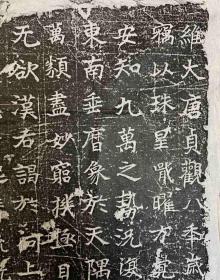 維大唐貞觀八年歲
以珠星戢曜方
安知九萬之勢況復
東南垂曆象於天隅
萬類盡妙窮極自
无欲漢君謁於河上